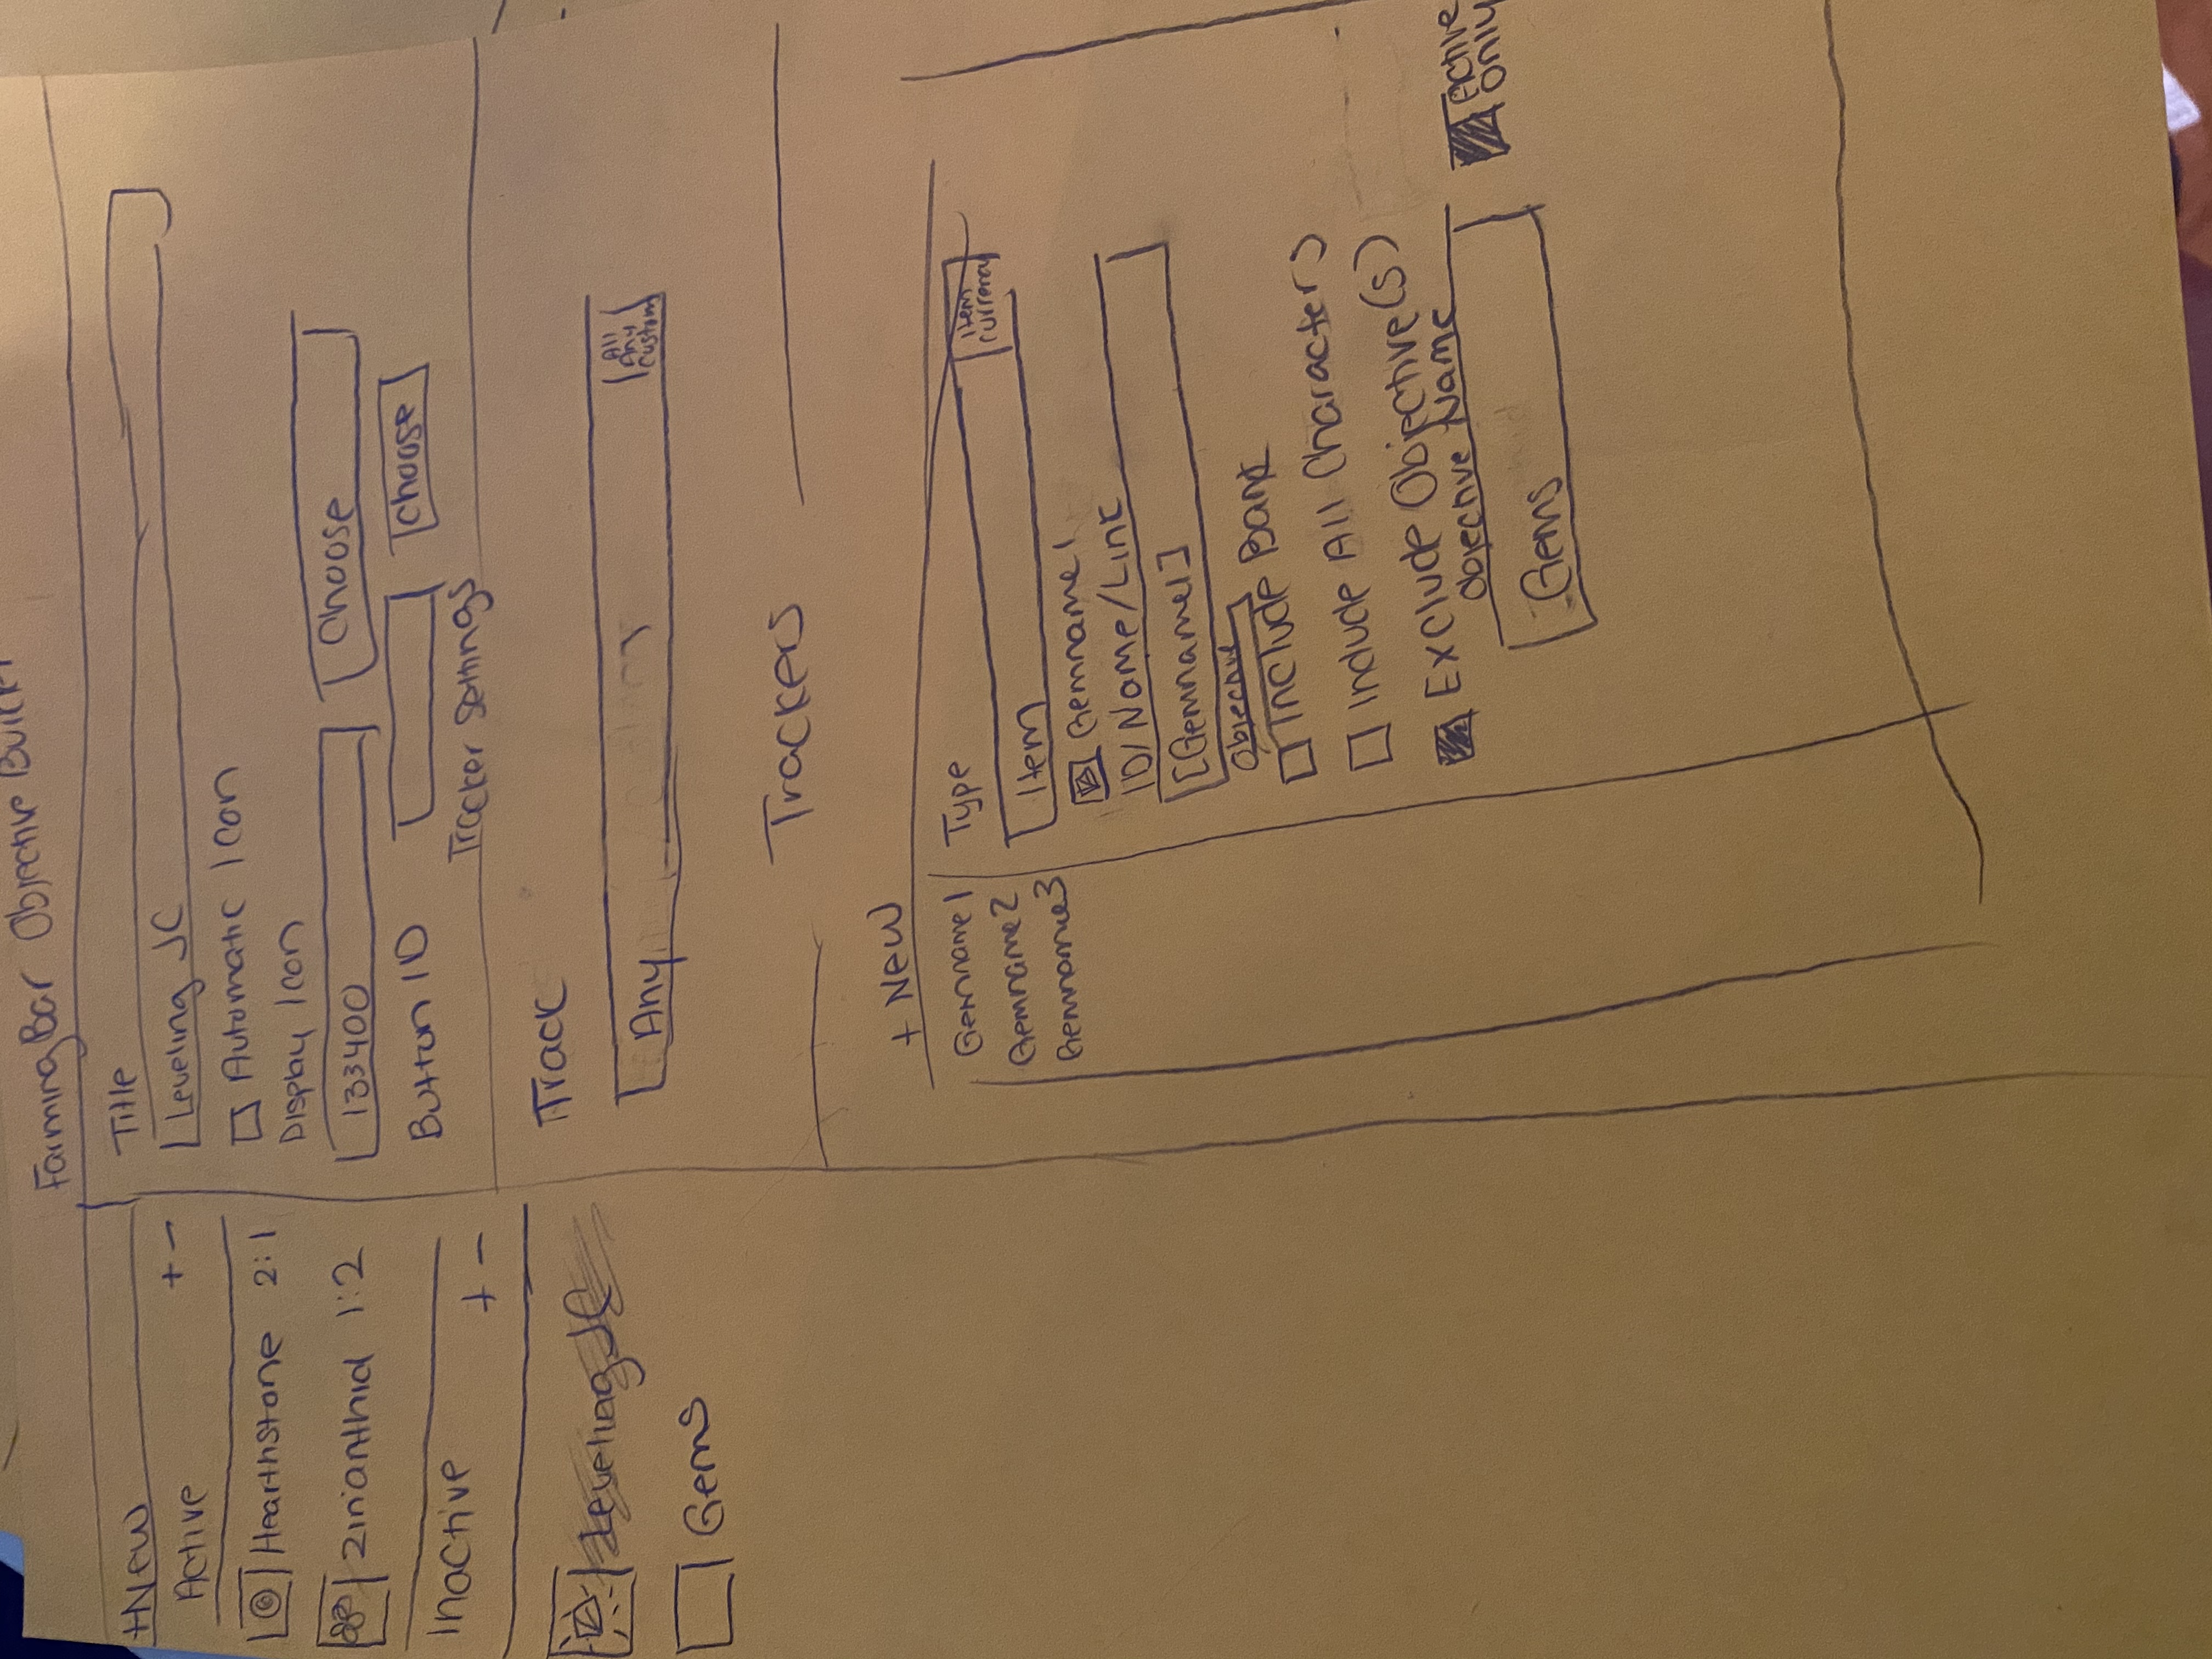 FarmingBar Objective Builder
+New
Active + -
Hearthstone 2:1
Zin'anthid 1:2
Inactive
+ -
Leveling JC
Gems
Title
Leveling JC
Automatic Icon
Display Icon
133400 Choose
Button ID Choose
Tracker Settings
Track
Any
All
Any
Custom
Trackers
+ New
Gemname1
Gemname2
Gemname3
Type
Item
Item
Currency
Gemname1
ID/Name/Link
[Gemname1]
Objective
Include Bank
Include All Characters
Exclude Objective(s)
Objective Name
Gems
Active
Only